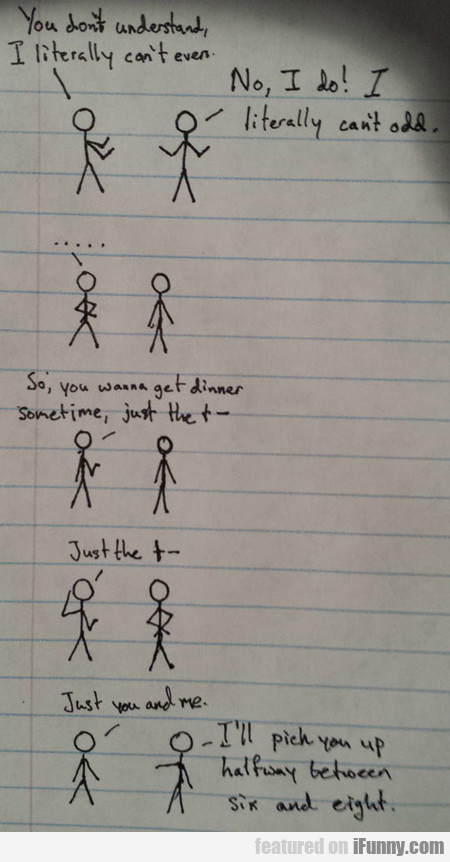 You don't understand,
I literally can't even.
No, I do! I
literally can't odd.
.....
So, you wanna get dinner
sometime, just the t-
Just the t-
Just you and me.
I'll pick you up
halfway between
six and eight.
featured on iFunny.com